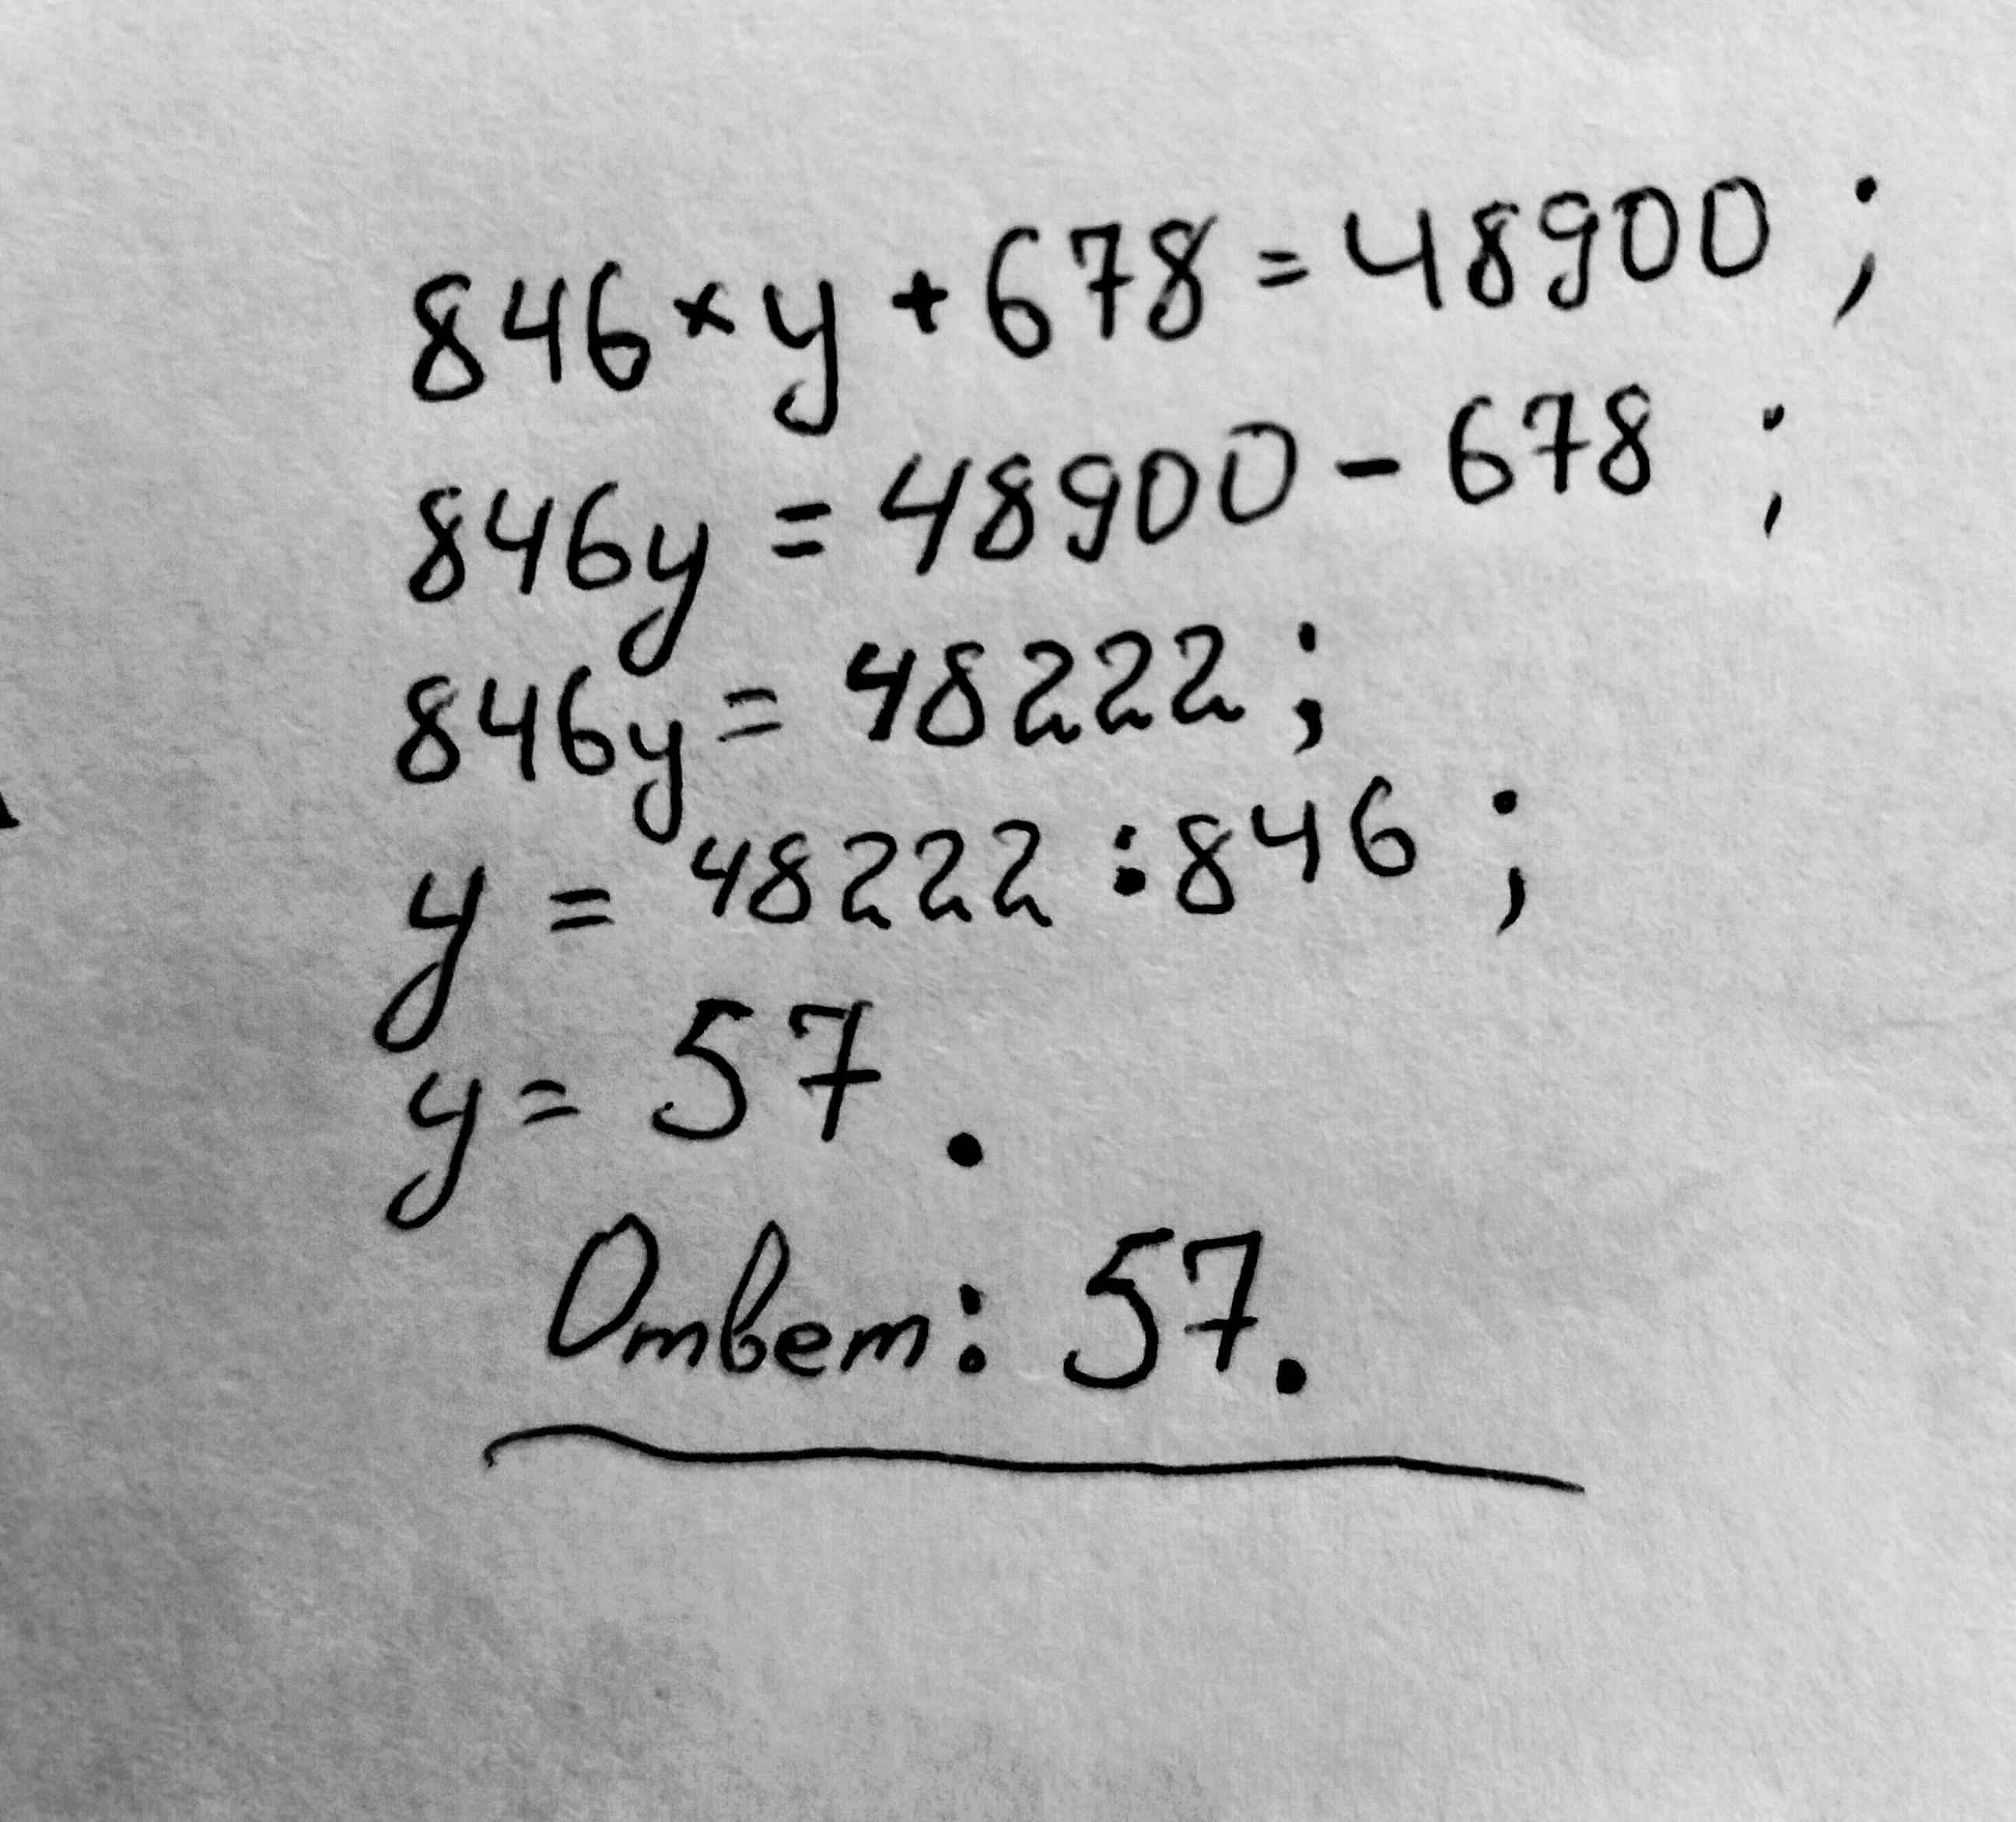 846 × y + 678 = 48900 ;
846y = 48900 - 678 ;
846y = 48222 ;
y = 48222 : 846 ;
y = 57 .
Ответ: 57.